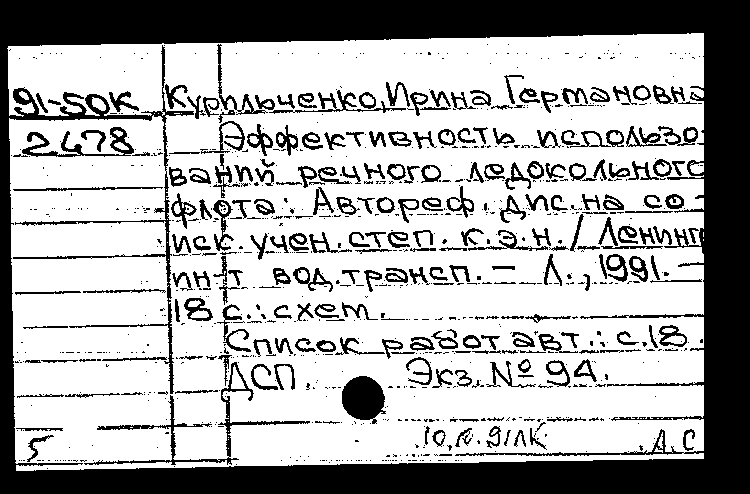 91-50К Курильченко, Ирина Германовна
2478 Эффективность использо-
ваний речного ледокольного
флота: Автореф. дис. на со-
иск. учен. степ. к.э.н. / Ленингр
ин-т вод. трансп. — Л., 1991. —
18 с.: схем.
Список работ авт.: с. 18.
ДСП. Экз. № 94.
5 .А.С